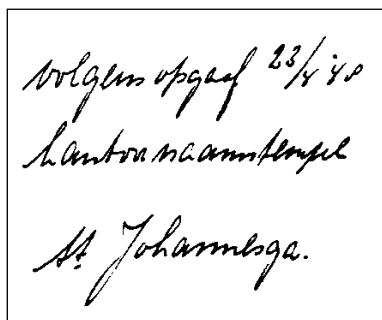 volgens opgaaf 23/4 '48
kantoornaamstempel
St Johannesga.